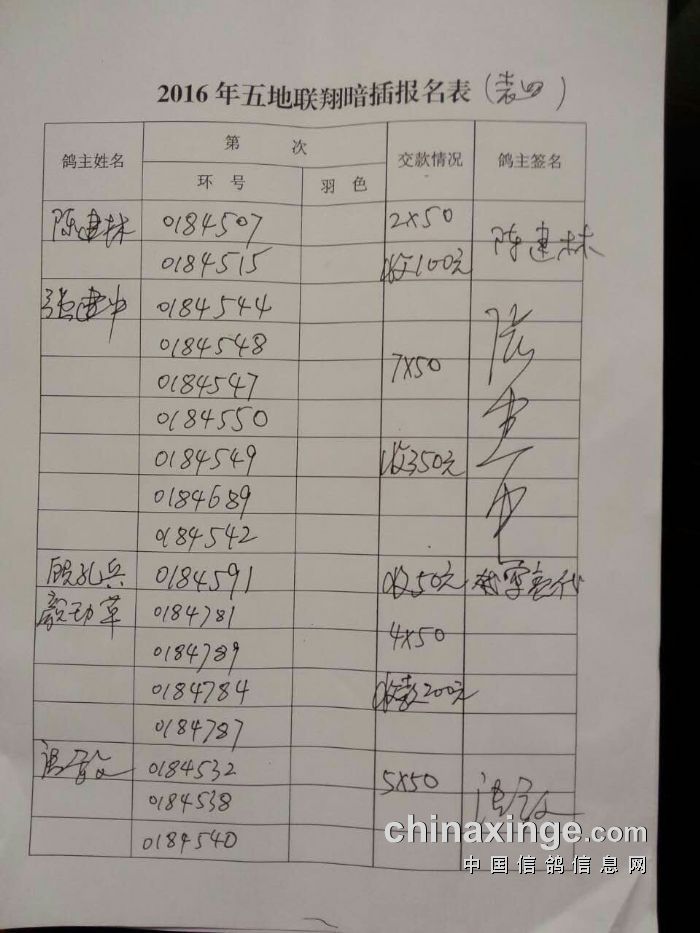 2016年五地联翔暗插报名表(表四)
鸽主姓名 第 次 交款情况 鸽主签名
环号 羽色
陈建林 0184507 2X50 陈建林
0184515 收100元
张建中 0184544
0184548
0184547 7X50
0184550
0184549 收350元
0184689
0184542
顾孔兵 0184591 收50元
0184781
0184789 4X50
0184784 收款200元
0184787
0184532 5X50
0184538
0184540
chinaxinge.com
中国信鸽信息网